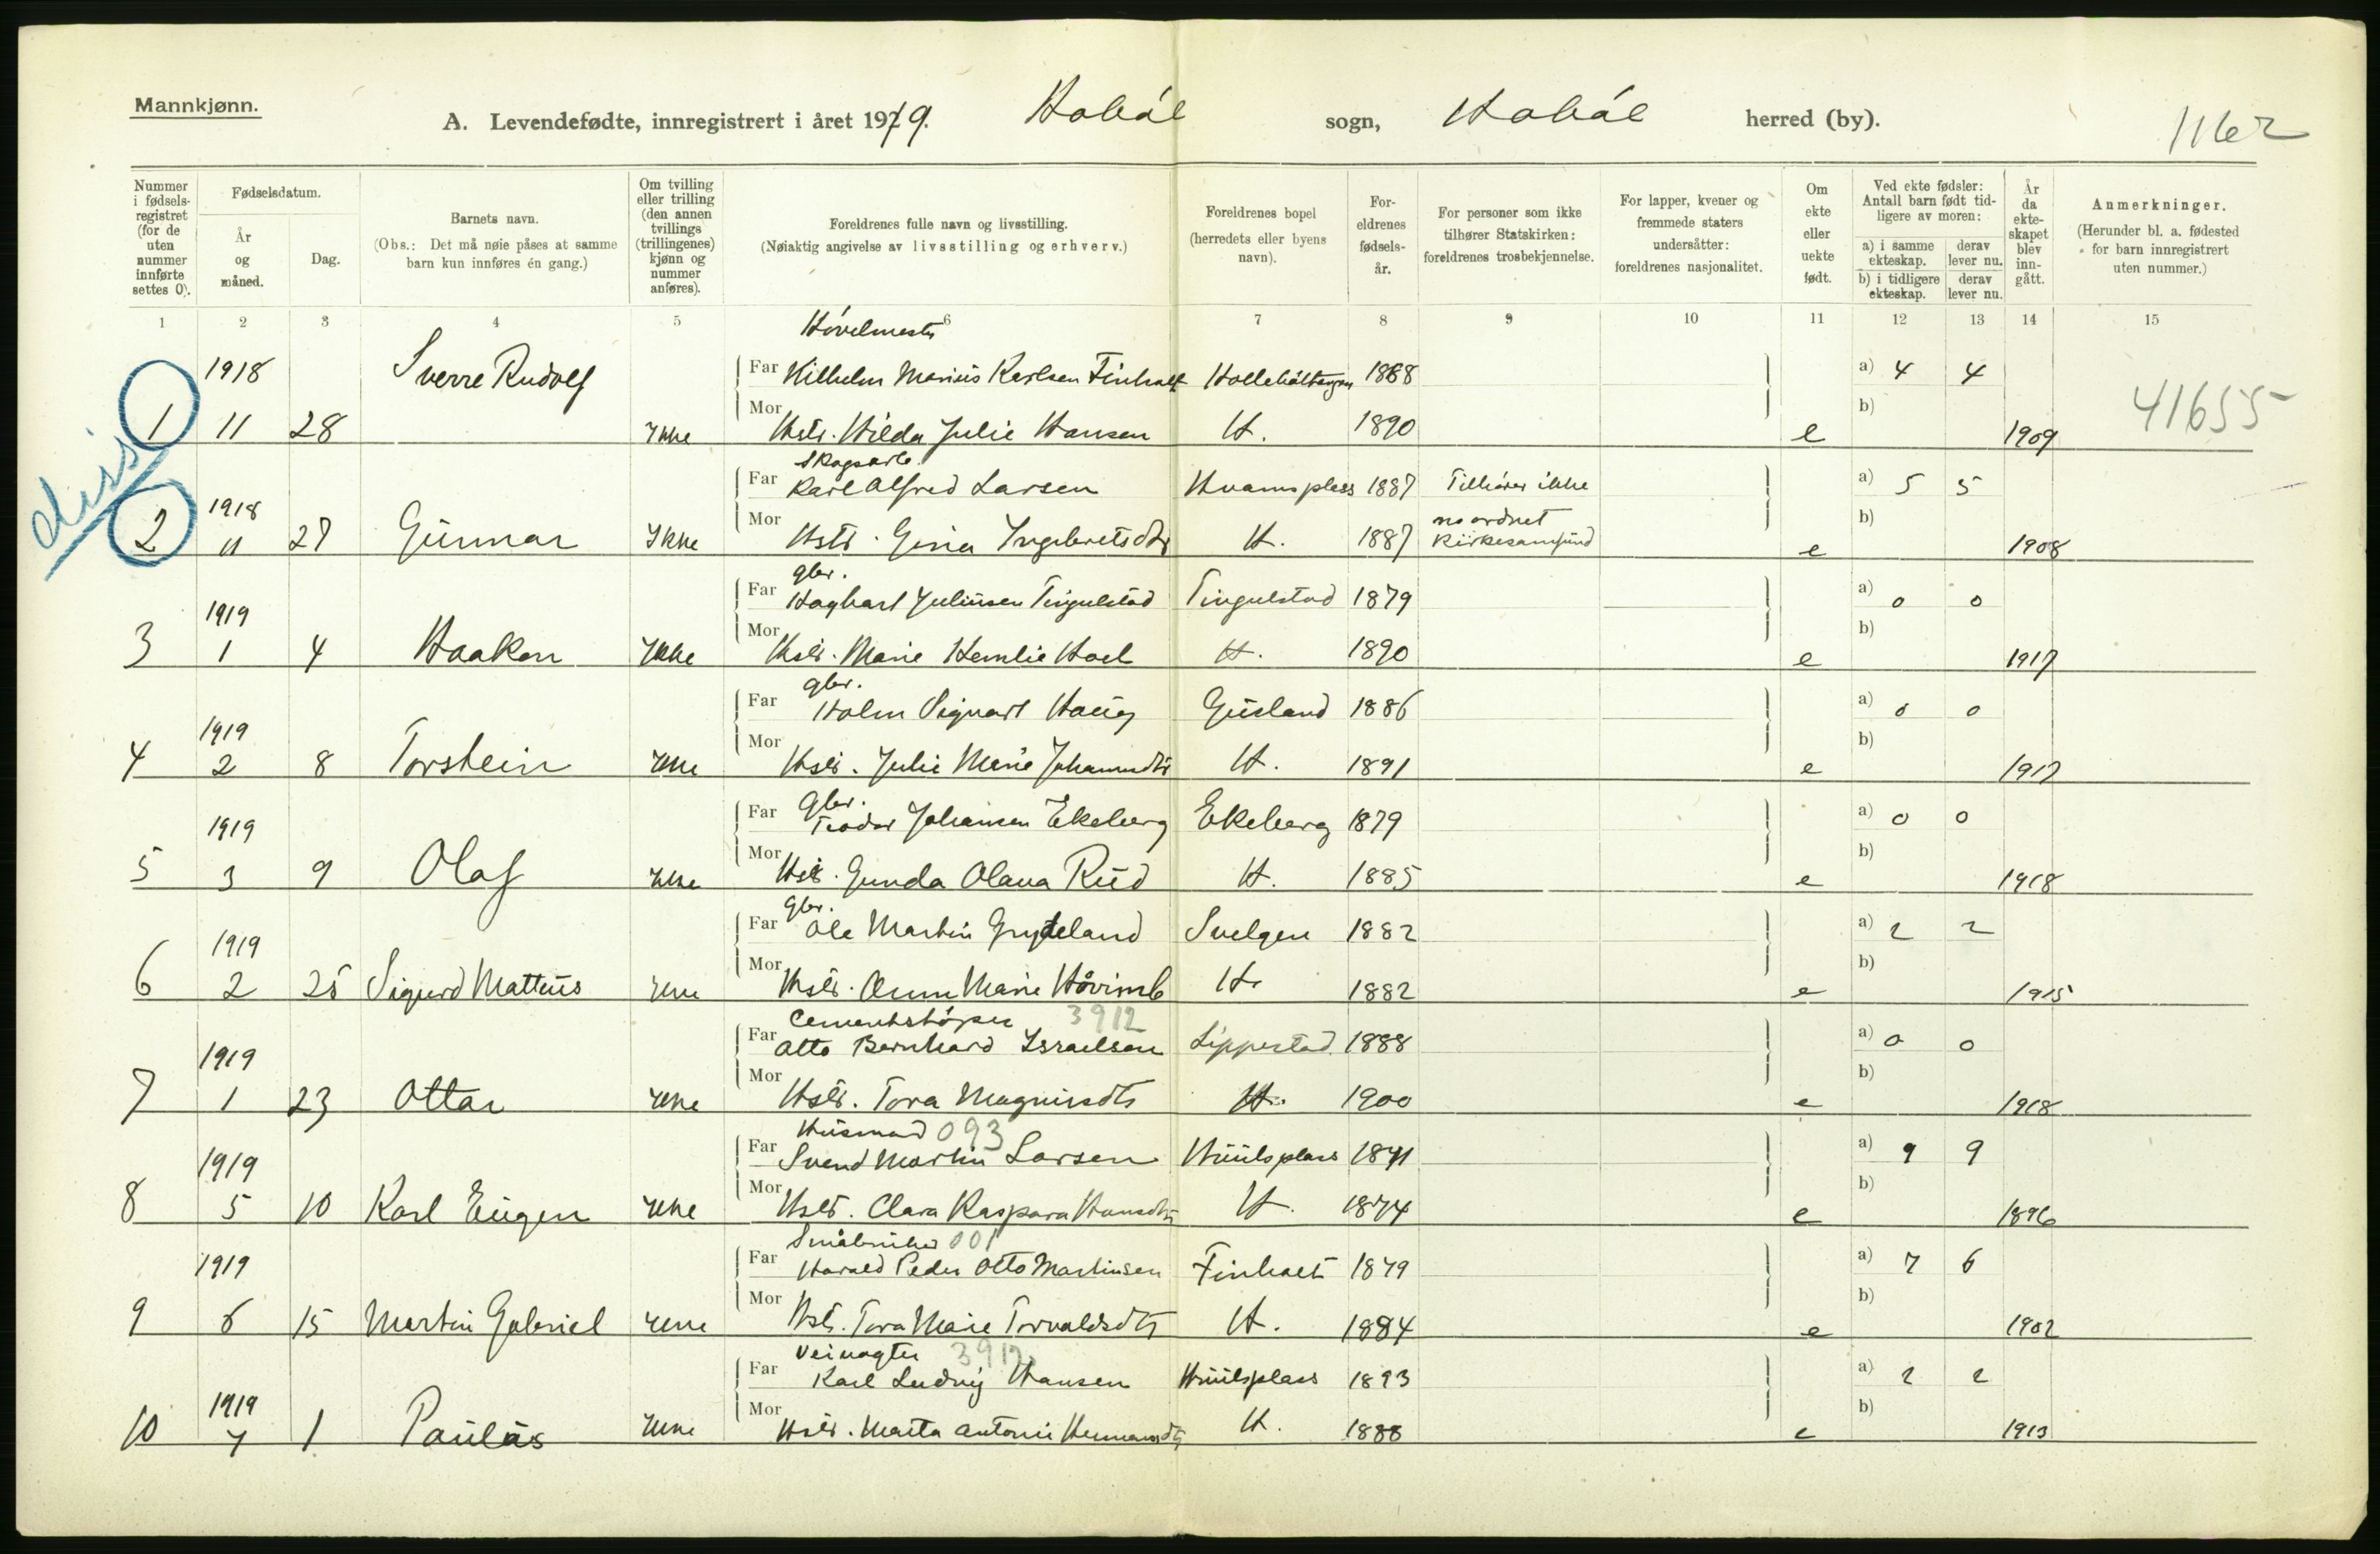 Mannkjønn.
A. Levendefødte, innregistrert i året 1919. Hobøl sogn, Hobøl herred (by).
1162
Nummer i fødselsregistret (for de uten nummer innførte settes 0).
Fødselsdatum.
År og måned.
Dag.
Barnets navn.
(Obs.: Det må nøie påses at samme barn kun innføres én gang.)
Om tvilling eller trilling (den annen tvillings (trillingenes) kjønn og nummer anføres).
Foreldrenes fulle navn og livsstilling.
(Nøiaktig angivelse av livsstilling og erhverv.)
Foreldrenes bopel (herredets eller byens navn).
Foreldrenes fødselsår.
For personer som ikke tilhører Statskirken: foreldrenes trosbekjennelse.
For lapper, kvener og fremmede staters undersåtter: foreldrenes nasjonalitet.
Om ekte eller uekte født.
Ved ekte fødsler: Antall barn født tidligere av moren:
a) i samme ekteskap. derav lever nu.
b) i tidligere ekteskap. derav lever nu.
År da ekteskapet blev inngått.
Anmerkninger.
(Herunder bl. a. fødested for barn innregistrert uten nummer.)
1 2 3 4 5 6 7 8 9 10 11 12 13 14 15
diss
Høvelmester
1918 Sverre Rudolf Far Vilhelm Marius Karlsen Finholt 1888 a) 4 4
41655
1 11 28 Ikke Mor Hstr. Hilda Julie Hansen H. 1890 e b) 1909
Skogsarb.
Far Karl Alfred Larsen Hvamsplass 1887 Tilhører ikke a) 5 5
1918 noordnet
2 11 27 Gunnar Ikke Mor Hstr. Gina Ingebretsdtr H. 1887 Kirkesamfund e b) 1908
gbr.
Far Hagbart Juliussen Tingulstad Tingulstad 1879 a) 0 0
1919
3 1 4 Haakon Ikke Mor Hstr. Marie Hemlie Hoel H. 1890 e b) 1917
gbr.
Far Holm Sigvart Haug Gusland 1886 a) 0 0
1919
4 2 8 Torstein Ikke Mor Hstr. Julie Marie Johannsdtr H. 1891 e b) 1917
Gbr.
Far Teodor Johansen Ekeberg Ekeberg 1879 a) 0 0
1919
5 3 9 Olaf Ikke Mor Hstr. Gunda Olava Rud H. 1885 e b) 1918
Gbr.
Far Ole Martin Grydeland Svelgen 1882 a) 2 2
1919
6 2 25 Sigurd Matteus Ikke Mor Hstr. Anne Marie H. 1882 e b) 1915
Cementstøper 3912
Far Otto Bernhard Israelsen Lippestad 1888 a) 0 0
1919
7 1 23 Ottar Ikke Mor Hstr. Tora Magnusdtr H. 1900 e b) 1918
Husmand 093
Far Svend Martin Larsen Huulsplass 1871 a) 9 9
1919
8 5 10 Karl Eugen Ikke Mor Hstr. Clara Kaspara Hansdtr H. 1874 e b) 1896
Småbruker 001
Far Harald Peder Otto Martinsen Finholt 1879 a) 7 6
1919
9 6 15 Martin Gabriel Ikke Mor Hstr. Tora Marie Torvaldsdtr H. 1884 e b) 1902
Veivogter 3912
Far Karl Ludvig Hansen Huulsplass 1893 a) 2 2
1919
10 7 1 Paul Ikke Mor Hstr. Marta Antonie Hermansdtr H. 1888 e b) 1913